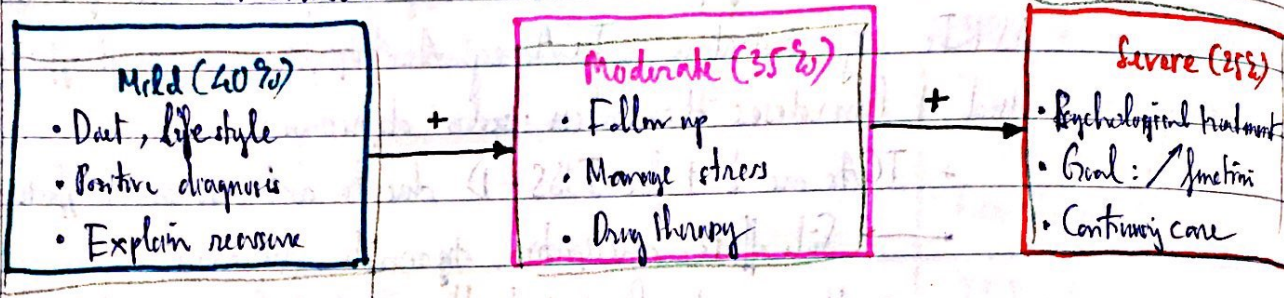 Mild (40%)
• Diet, life style
• Positive diagnosis
• Explain reassure
+
Moderate (35%)
• Follow up
• Manage stress
• Drug therapy
+
Severe (25%)
• Psychological treatment
• Goal: ↗ function
• Continuing care